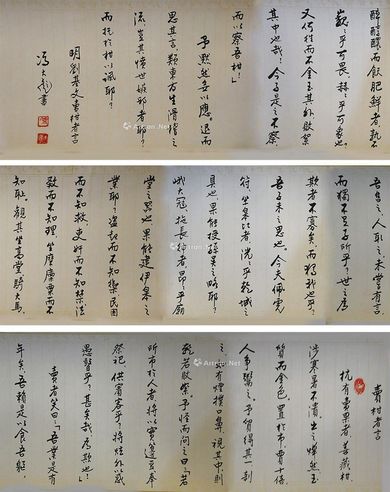 賣柑者言
杭有賣果者善藏柑
涉寒暑不潰出之燁然玉
質而金色置於市賈十倍
人爭鬻之予貿得其一剖
之如有煙撲口鼻視其中則
乾若敗絮予怪而問之曰若
所市於人者將以實籩豆奉
祭祀供賓客乎將炫外以惑
愚瞽乎甚矣哉為欺也!
賣者笑曰:「吾業是有
年矣吾賴是以食吾軀
吾售之人取之未嘗有言
而獨不足子所乎?世之為
欺者不寡矣而獨我也乎?
吾子未之思也今夫佩虎
符坐皋比者洸〻乎干城之
具也果能授孫吳之略耶?
峨大冠拖長紳者昂〻乎廟
堂之器也果能建伊皋之
業耶?盜起而不知禦民困
而不知救吏奸而不知禁法
斁而不知理坐縻廩粟而不
知恥觀其坐高堂騎大馬
醉醇醴而飫肥鮮者孰不
巍〻乎可畏赫〻乎可象也?
又何往而不金玉其外敗絮
其中也哉!今子是之不察
而以察吾柑!
予默然無以應退而
思其言類東方生滑稽之
流豈其憤世嫉邪者耶?
而托於柑以諷耶?
明劉基文賣柑者言
馮大彪書